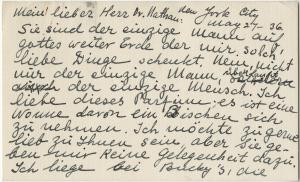 Mein lieber Herr Dr. Nathan: New York City
May 27 36
Sie sind der einzige Mann auf
gottes weiter Erde der mir solch
liebe Dinge schenkt. Nein, nicht
nur der einzige Mann, überhaupt
der einzige Mensch. Ich
liebe dieses Parfume, es ist eine
Wonne davon ein Bischen sich
zu nehmen. Ich möchte zu gerne
lieb zu Ihnen sein, aber Sie ge-
ben mir keine Gelegenheit dazu.
Ich liege bei Bucky's, die